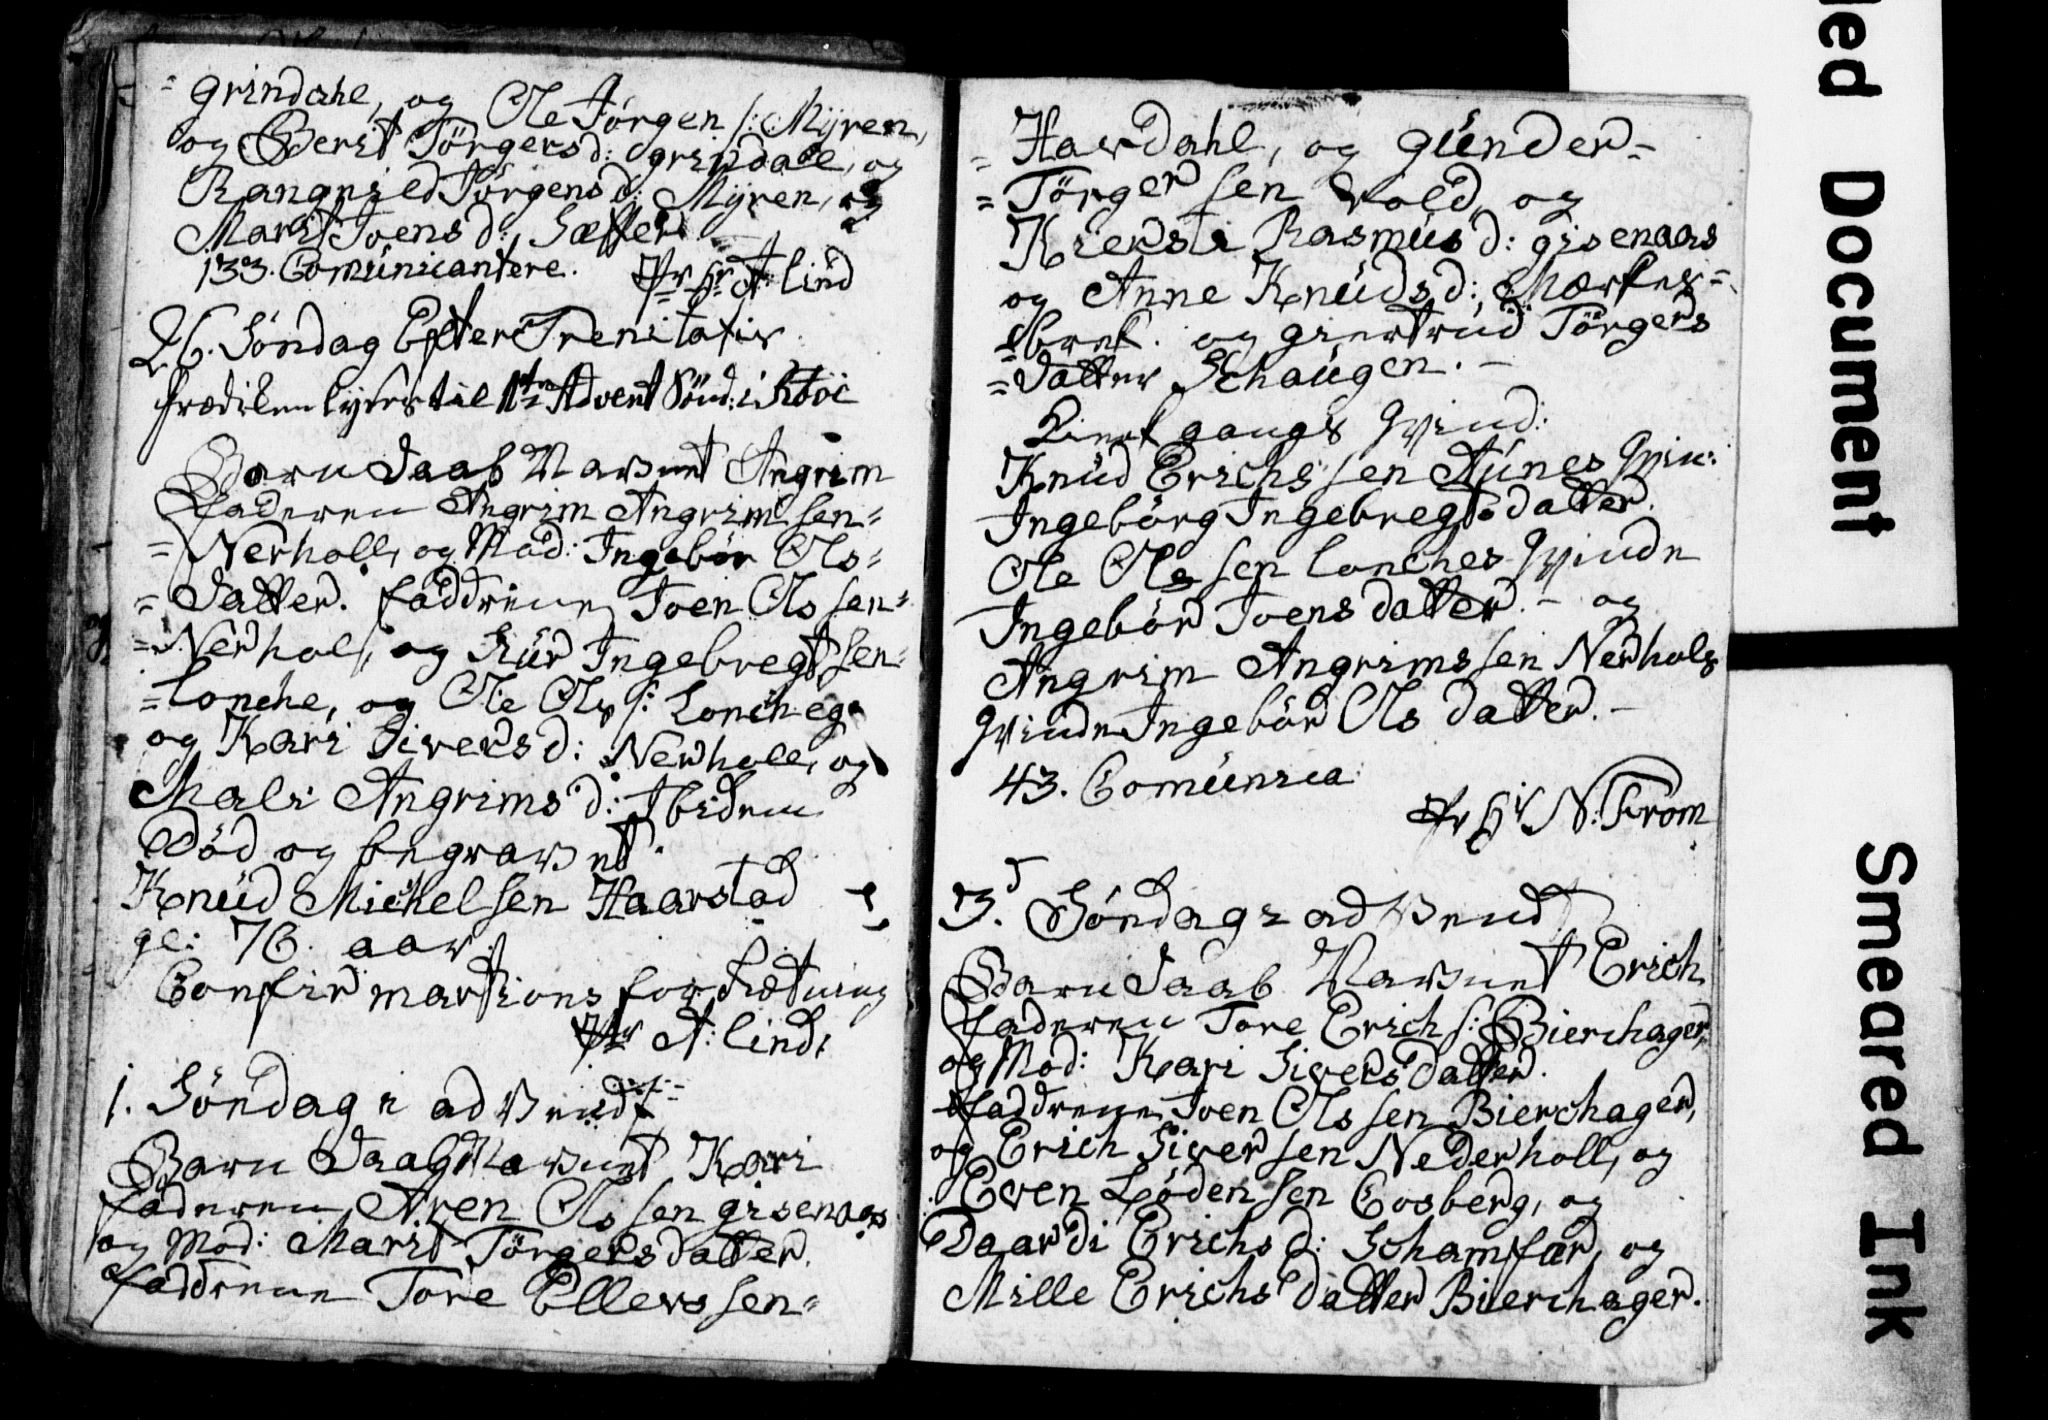 = grindahl, og Ole Jörgen s: Myren,
og Berit Törgersd: grindall, og
Rangnild Törgensd: Myren, og
Marit Joensd: Sætter
133. Comunicantere. Pr Hr A: lind
26. Söndag Efter Trenitatis
Prædiken lyses til 1te Advent Sönd: i
Barn Daab Navnet Angrim
Faderen Angrim Angrimsen=
= Nerholl, og Mod: Ingebör Ols=
= Datter. faddrene Joen Olssen=
= Nerhol, og Siur Ingebregtsen=
= lonche, og Ole Ols s: Lonchega
og Kari Siversd: Nerholl, og
Mali Angrimsd: Ibidem
Död og begravet.
Knud Michelsen Haarstad
gl: 76. aar.
Confirmartions forretning
Pr A: lind.
1. Söndag i advendt
Barn Daab Navnet Kari
faderen Aren Olssen gisenaas
og Mod: Marit Törgersdatter.
faddrene Tore Ellerssen=
= Havdahl, og gunder=
= Törgersen Vold, og
Kiersti Rasmusd: gisenaas
og Anne Knudsd: Mærkes=
= brek. og giertrud Törgers
= Datter Schaugen. -
Kirkgangs Qvind:
Knud Erichssen Aunes Qvin:
Ingebörg Ingebregtsdatter.
Ole Olssen lonches Qvinde
Ingebör Joensdatter. - og
Angrim Angrimssen Nerhols
Qvinde Ingebör Olsdatter. -
43. Comunica:
Pr Hr N: Krom
3. Söndag i advend
Barn Daab Navnet Erich
Faderen Tore Erich s: Bierchager,
og Mod: Kari Siversdatter.
faddrene Joen Olssen Bierchager,
og Erich Siversen Nederholl, og
Even Lödensen Cosberg, og
Daardi Erichsd: Schamfar, og
Mille Erichsdatter Bierchager.
led Document
Smeared Ink